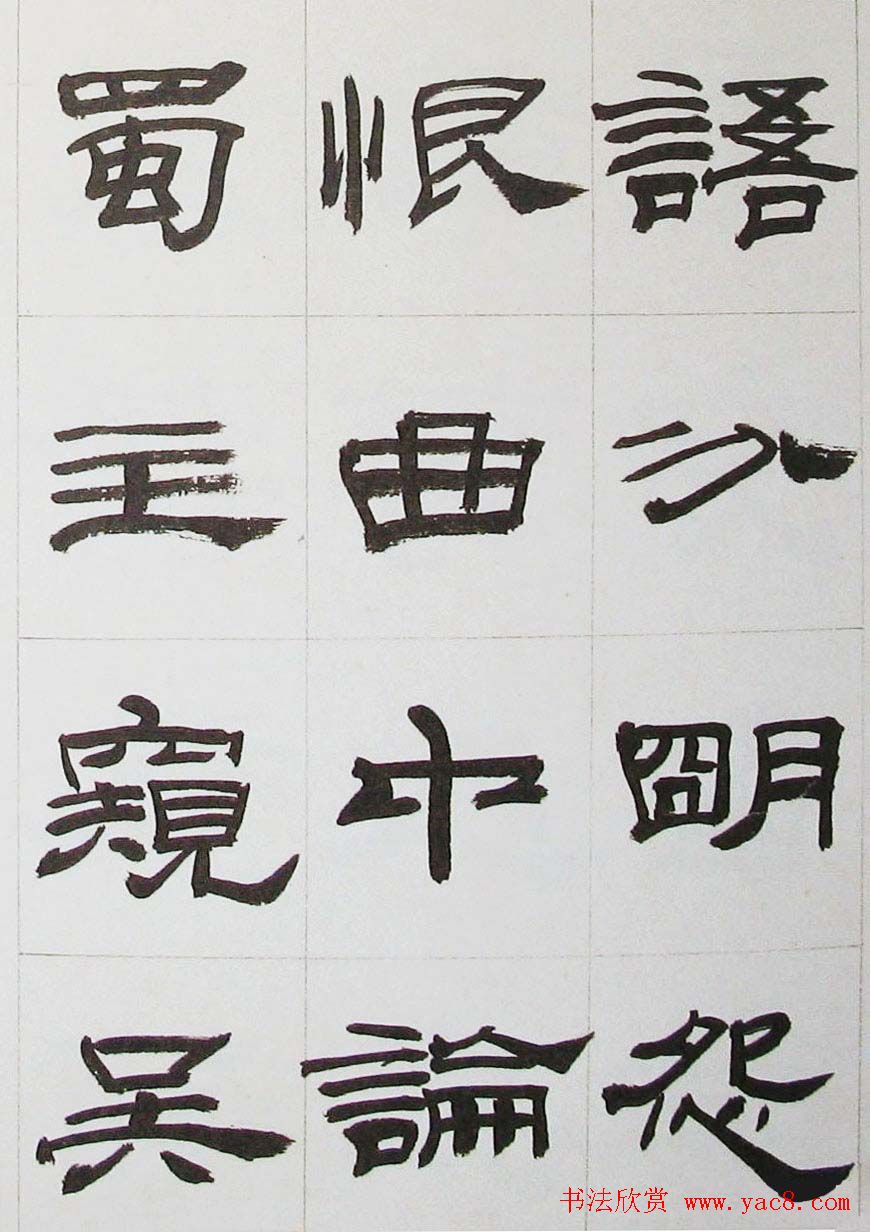 語分明怨
恨曲中論
蜀主窺吳
书法欣赏 www.yac8.com